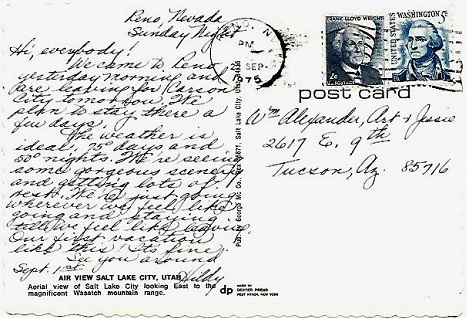 Reno, Nevada
Sunday Night
Hi, everybody!
We came to Reno
yesterday morning and
are leaving for Carson
City tomorrow. We
plan to stay there a
few days.
The weather is
ideal. 75° days and
50° nights. We're seeing
some gorgeous scenery
and getting lots of
rest. We're just going
wherever we feel like
going and staying
till we feel like leaving.
Our first vacation
like this. It's fine!
See you around
Sept. 1st
Hildy
AIR VIEW SALT LAKE CITY, UTAH
Aerial view of Salt Lake City looking East to the
magnificent Wasatch mountain range.
dp
MADE BY
DEXTER PRESS
WEST NYACK, NEW YORK
Salt Lake City, Utah
RENO, NV
PM
SEP
1975
FRANK LLOYD WRIGHT
2¢
UNITED STATES
WASHINGTON 5¢
post card
Wm Alexander, Art & Jessie
2617 E. 9th
Tucson, Az. 85716